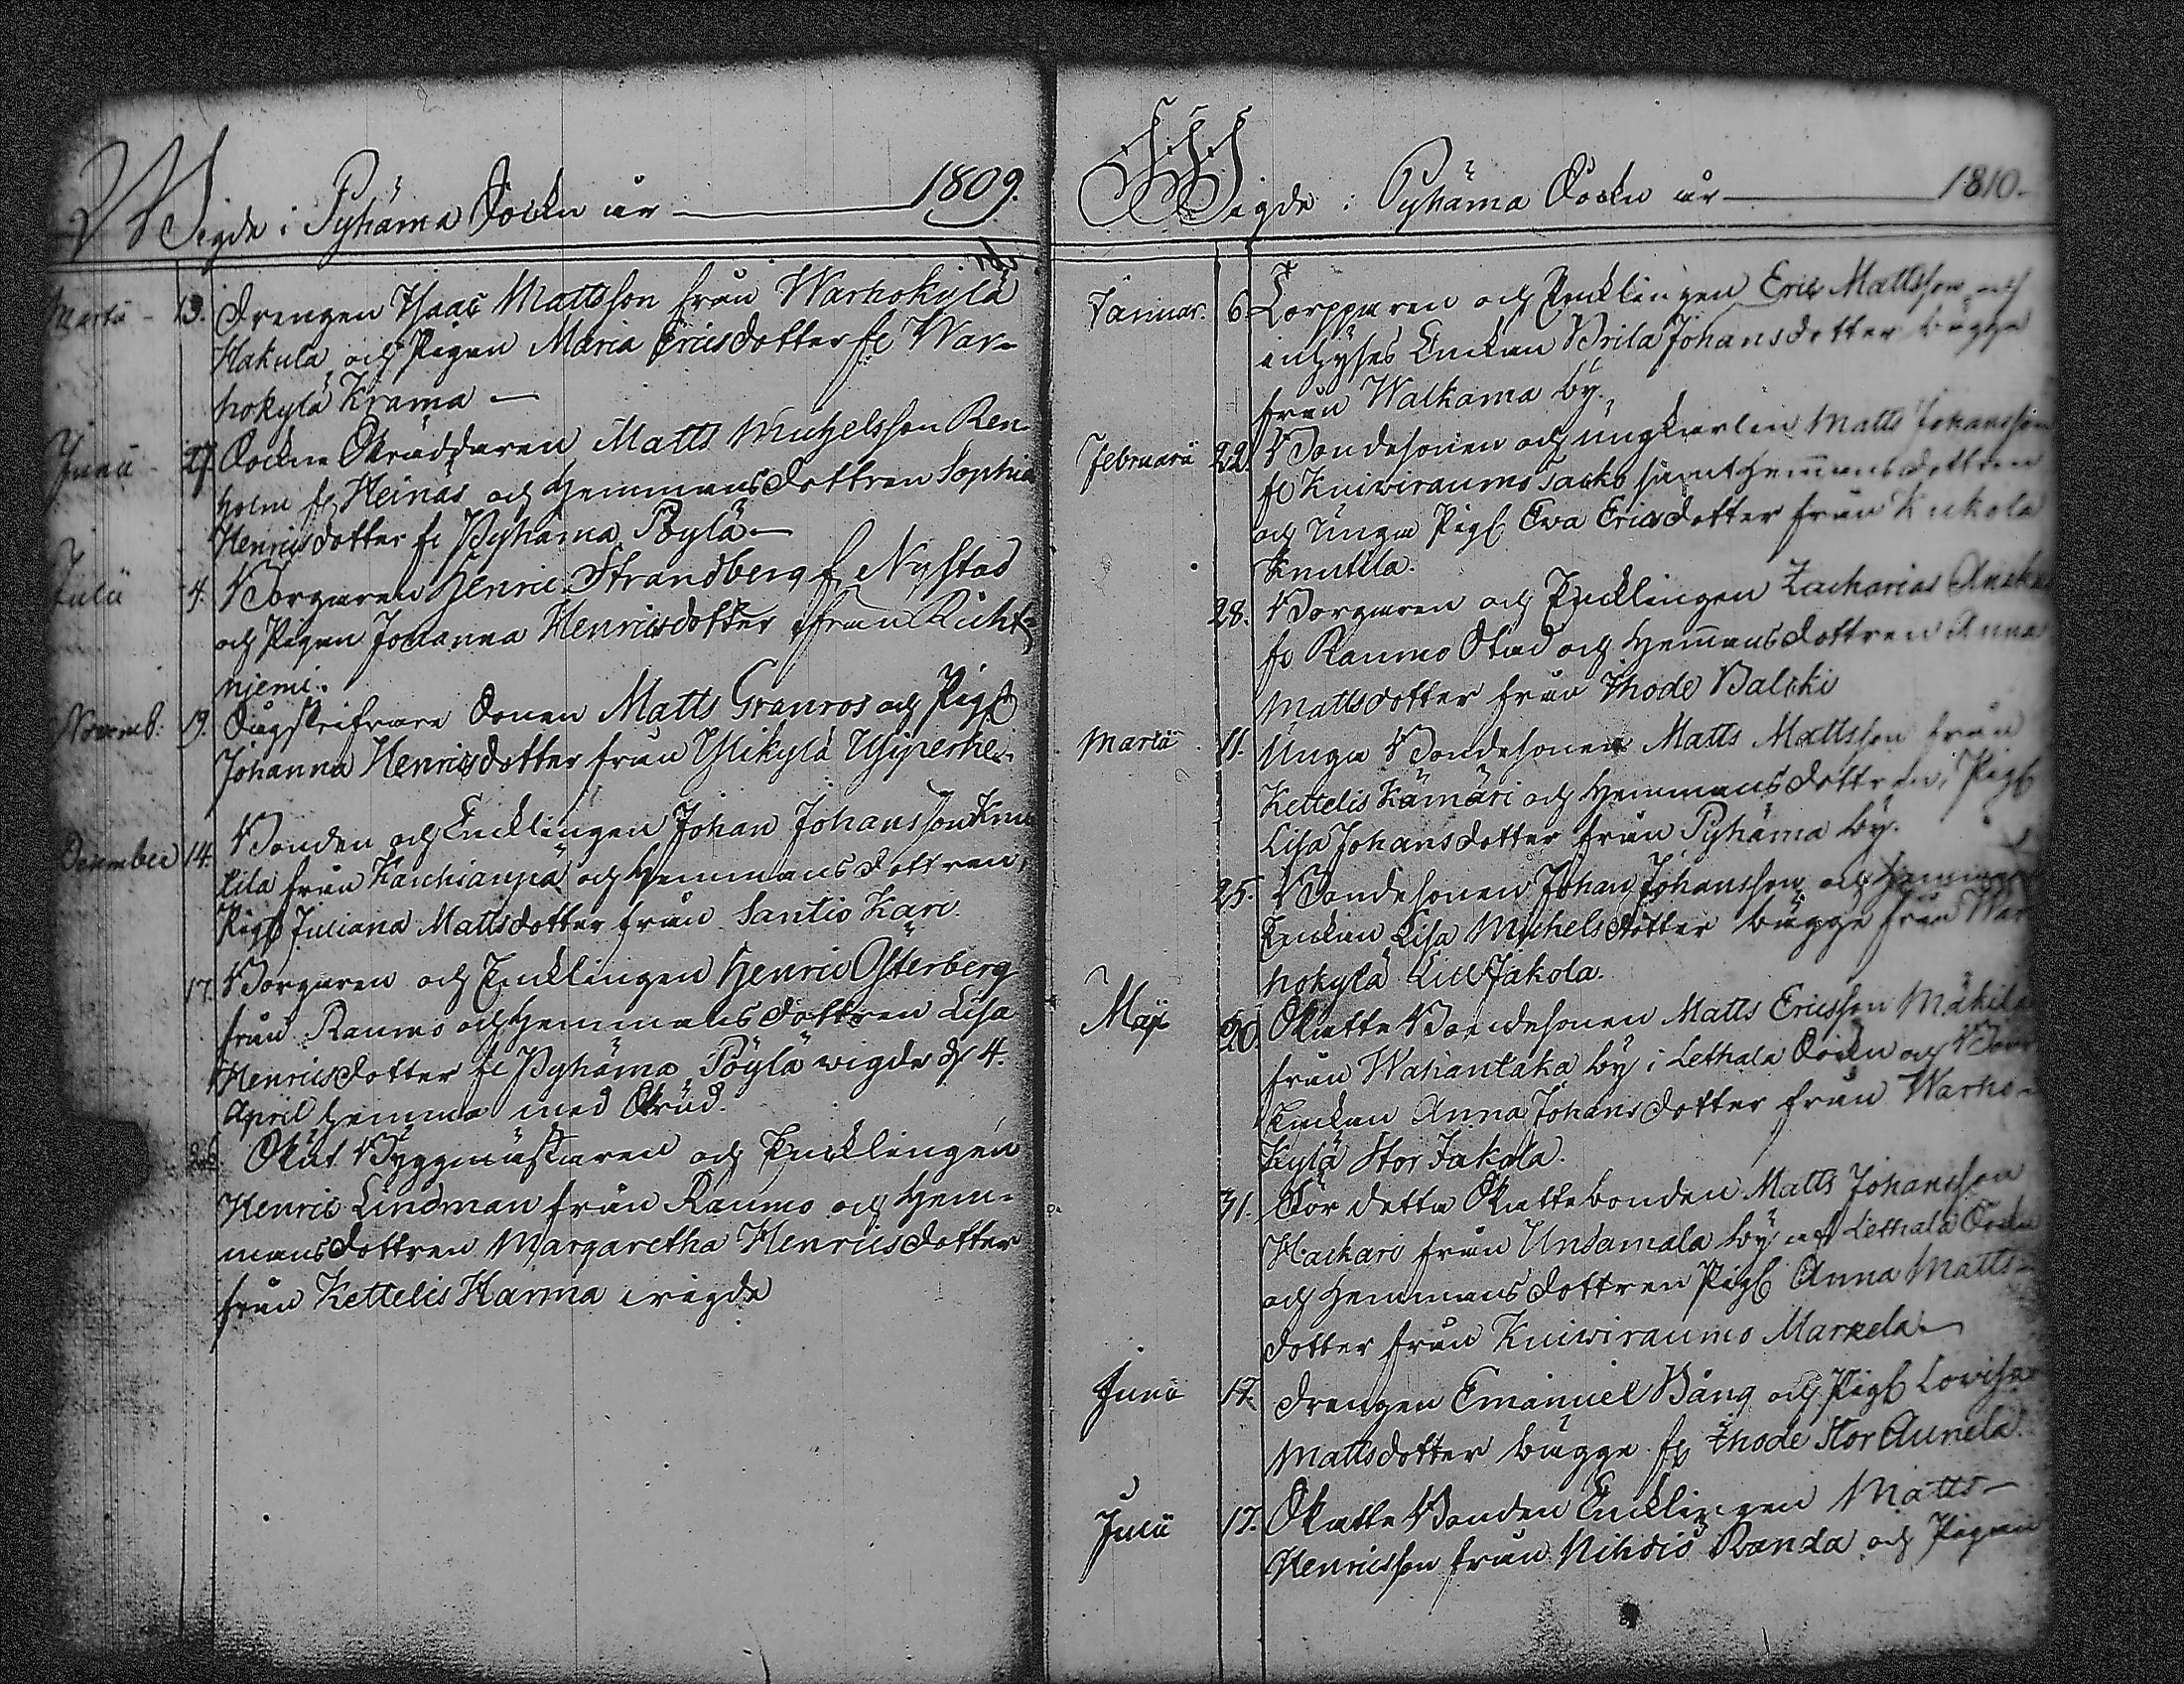 Wigde i Pyhäma Sockn år 1809.
Martii 13. Drengen Isaac Mattsson från Warhokylä
Hakula och Pigan Maria Ericsdotter fr War-
hokylä Krama
Junii 27. Sockne Skräddaren Matts Michelsson Ren-
holm fr Heinäs och Hemmansdottren Sophia
Henricsdotter fr Pyhäma Pöylä
Julii 4. Borgaren Henric Strandberg fr Nystad
och Pigan Johanna Henricsdotter från Richt-
niemi.
Novemb: 19. Matts Granros och Pigˢ
Johanna Henricsdotter från Ylikylä
December 14. Bonden och Encklingen Johan Johansson Knu
tila från och Hemmansdottren,
Pigˢ Juliana Mattsdotter från Santio Kari.
17. Borgaren och Encklingen Henric Österberg
från Raumo och Hemmansdottren Lisa
Henricsdotter fr Pyhäma Pöylä wigde d 4.
April hemma med Brud.
26. Skåt Byggmästaren och Encklingen
Henric Lindman från Raumo och Hem-
mansdottren Margaretha Henricsdotter
från Kettelis Harma wigde
Wigde i Pyhäma Sockn år 1810.
Januar. 6. Torpparen och Encklingen Eric Mattsson och
inhyses Enckan Brita Johansdotter bägge
från Walkama by.
Februarii 22. Bondesonen och ungkarlen Matts Johansson
fr Kuiwiraumo Tacko samt Hemmansdottren
och Unga Pigˢ Ewa Ericsdotter från Kukola
Knutila.
28. Borgaren och Encklingen Zacharias
fr Raumo Stad och Hemmansdottren Anna
Mattsdotter från Ihode Balcki
Martii 11. Unga Bondesonen Matts Mattsson från
Kettelis Kämäri och Hemmansdottren, Pigˢ
Lisa Johansdotter från Pyhäma by.
25. Bondesonen Johan Johansson och Hemmans
Enckan Lisa Michelsdotter bägge från War
hokylä Lill Jakola.
Maji 20. Skatte Bondesonen Matts Ericsson Mäkilä
från Wahantaka by i Lethala Sockn och Bond
Enckan Anna Johansdotter från Warho-
kylä Stor Jakola.
31. För detta Skattebonden Matts Johansson
Hackari från Undamala by af Lethala Sockn
och Hemmansdottren Pigˢ Anna Matts-
dotter från Kuiwiraumo Markela.
Junii 17. Drengen Emanuel Bång och Pigˢ Lovisa
Mattsdotter bägge fr Ihode Stor Aunela.
Julii 17. Skatte Bonden Encklingen Matts
Henricsson från Nihdiö Randa och Pigan